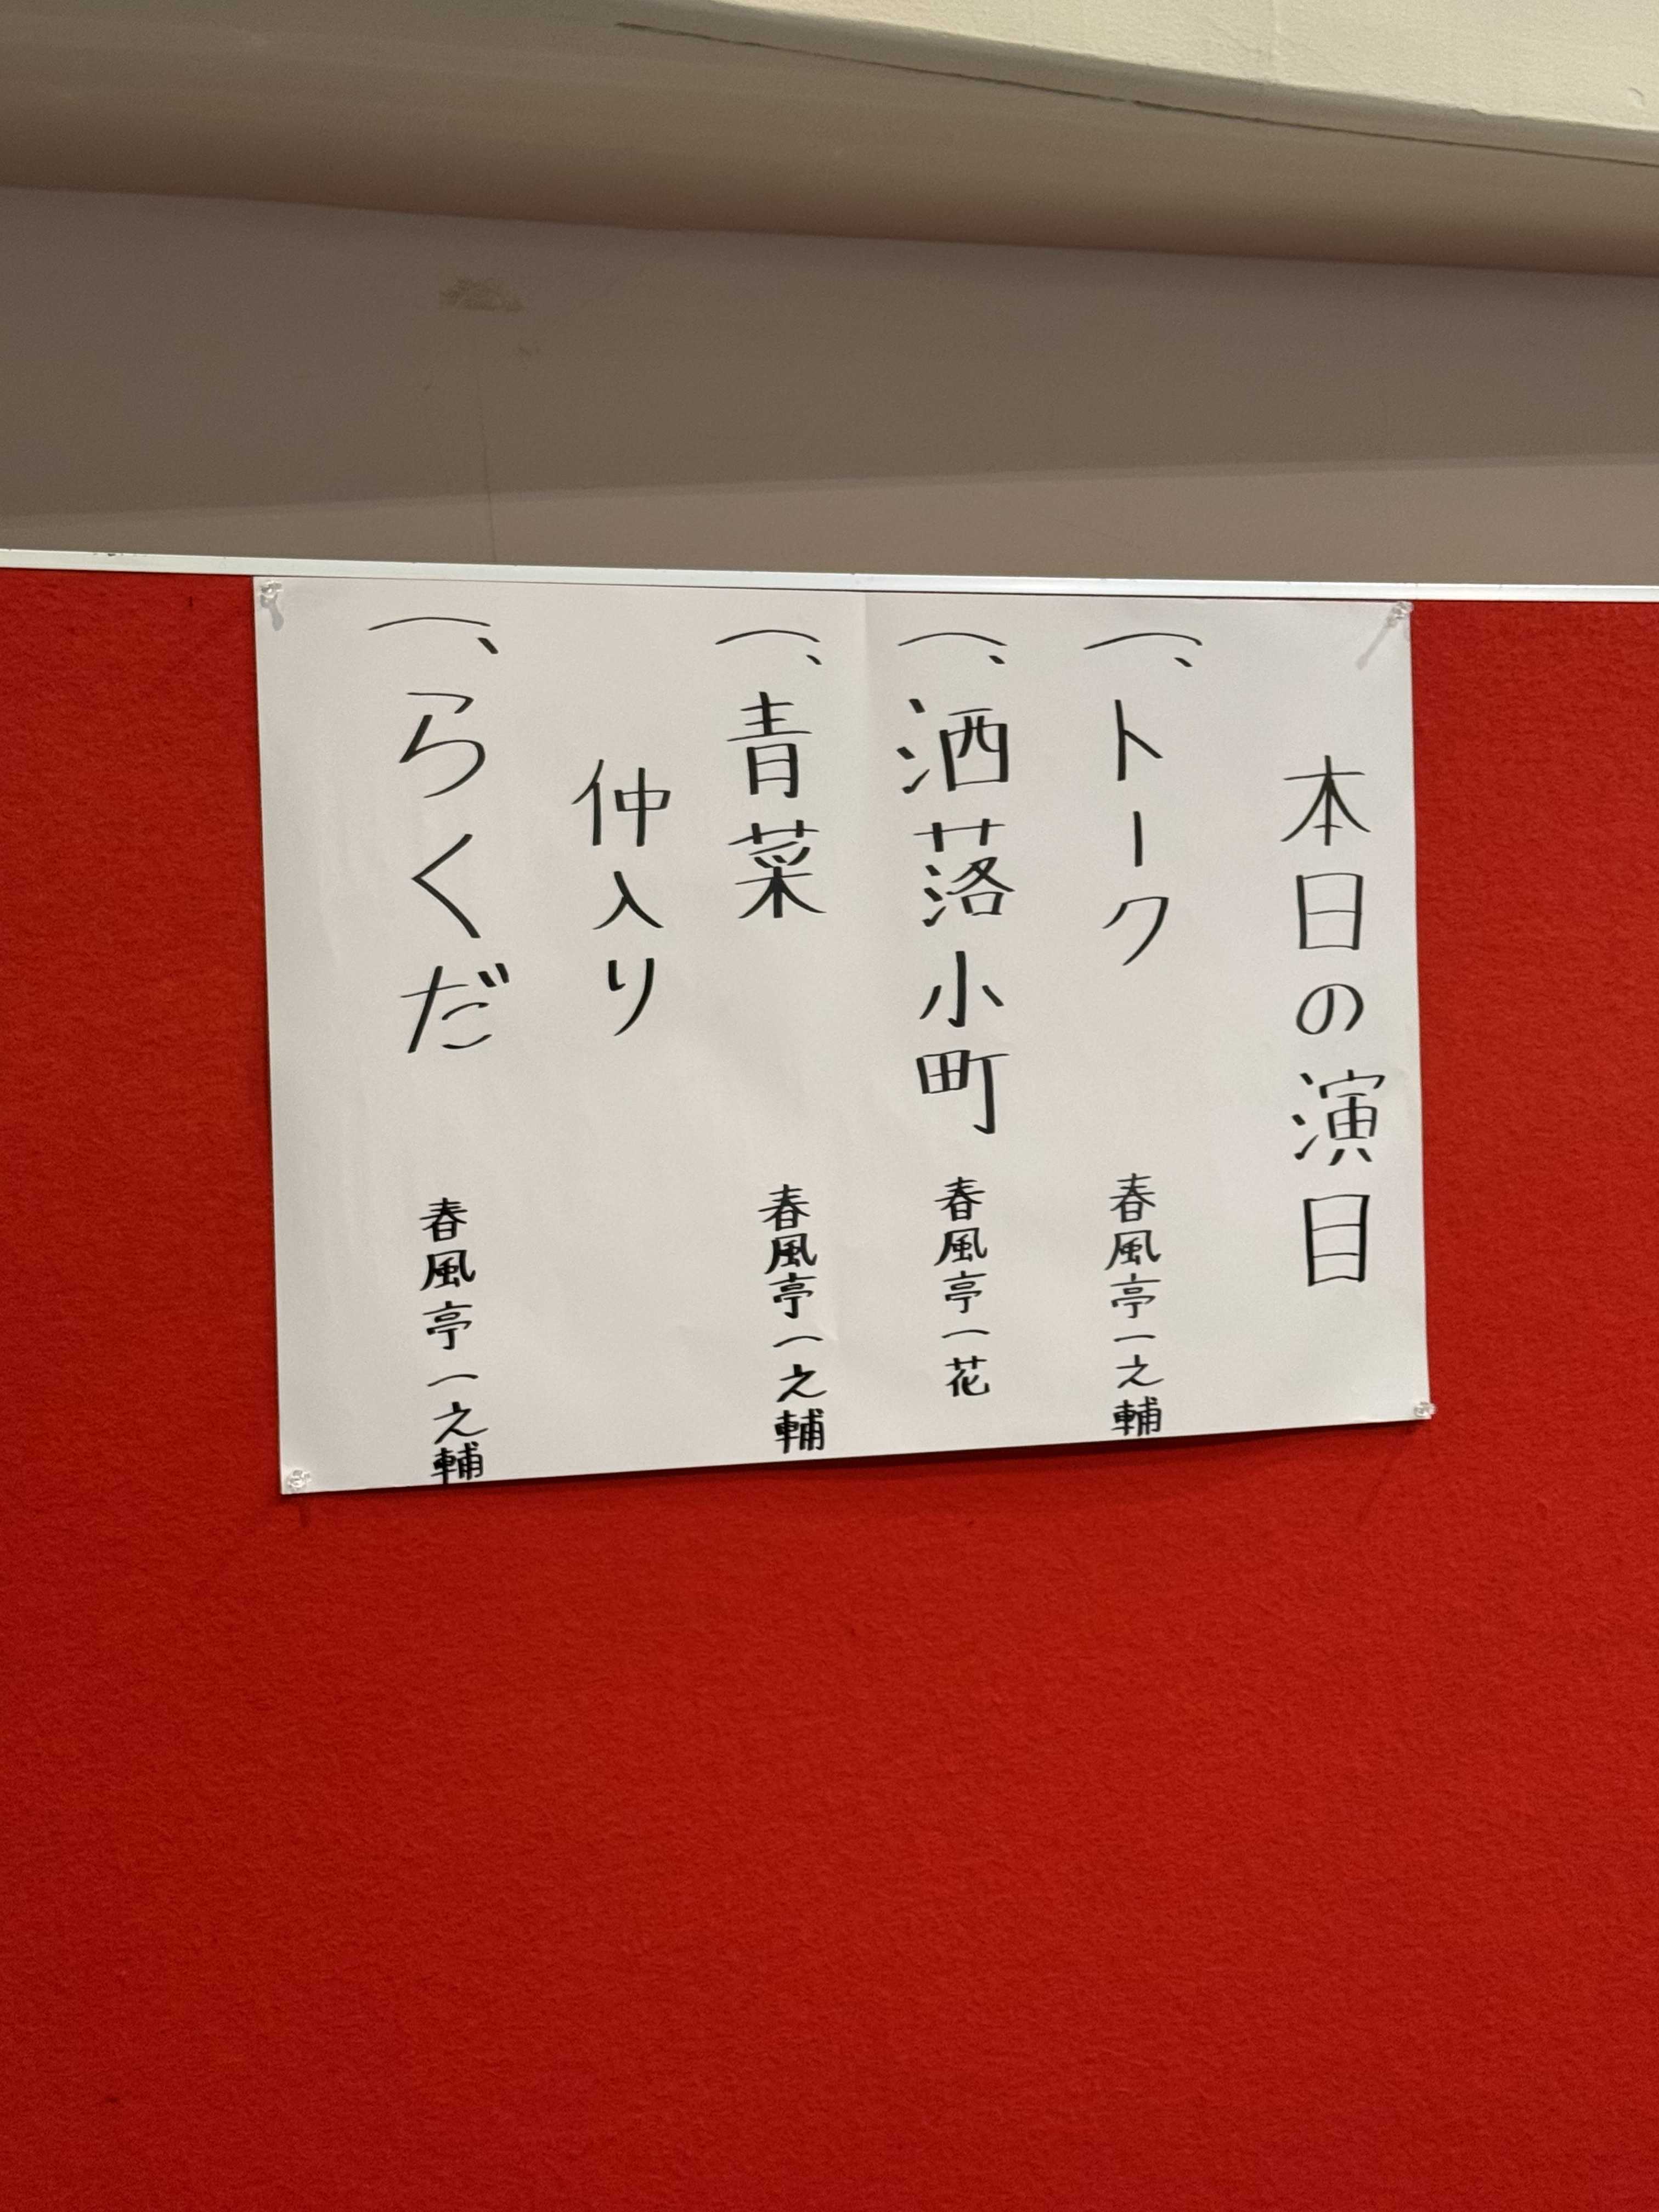 本日の演目
一、トーク 春風亭一之輔
一、洒落小町 春風亭一花
一、青菜 春風亭一之輔
仲入り
一、らくだ 春風亭一之輔